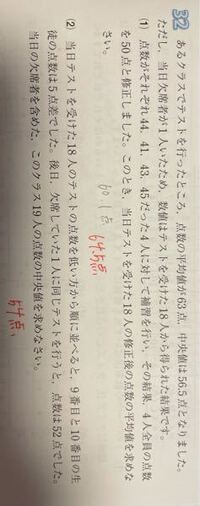 32
あるクラスでテストを行ったところ，点数の平均値が63点，中央値は56.5点となりました。
ただし，当日欠席者が1人いたため，数値はテストを受けた18人から得られた結果です。
(1) 点数がそれぞれ44，41，43，45だった4人に対して補習を行い，その結果，4人全員の点数
を50点と修正しました。このとき，当日テストを受けた18人の修正後の点数の平均値を求めな
さい。
60.1点
64.5点
(2) 当日テストを受けた18人のテストの点数を低い方から順に並べると，9番目と10番目の生
徒の点数は5点差でした。後日，欠席していた1人に同じテストを行うと，点数は52点でした。
当日の欠席者を含めた，このクラス19人の点数の中央値を求めなさい。
54点